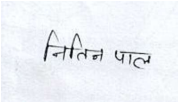 नितिन पाल